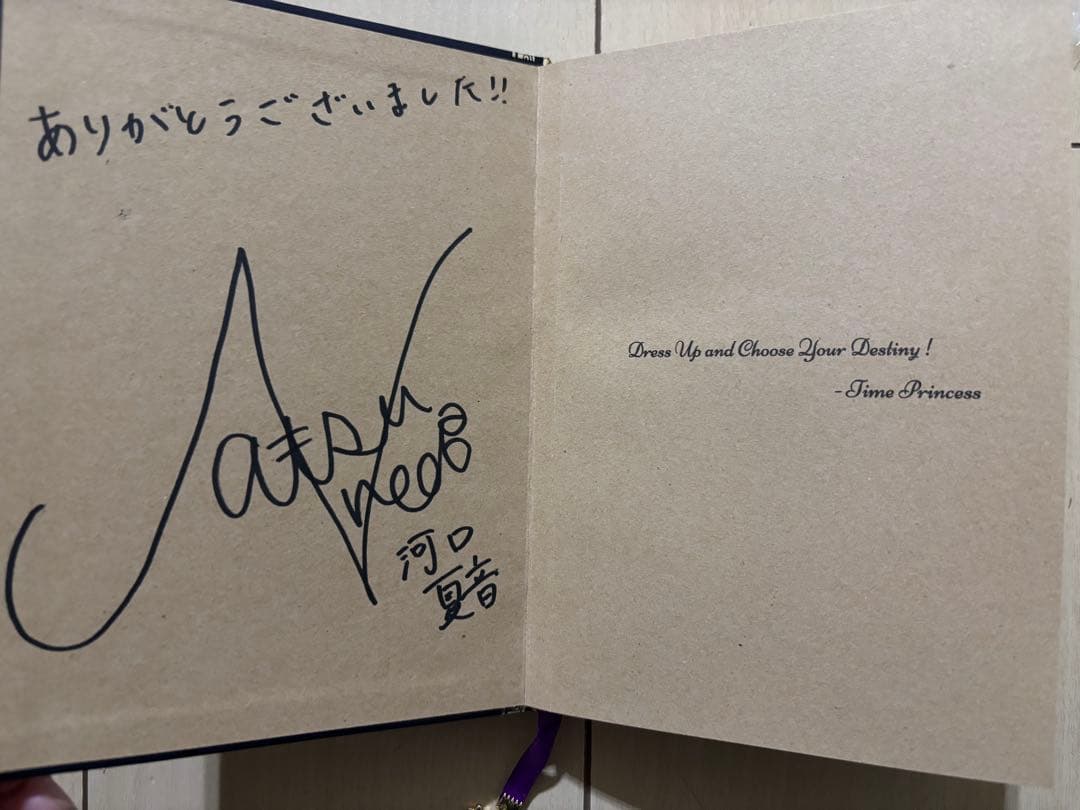 ありがとうございました!!
Natsu
ne
河口
夏音
Dress Up and Choose Your Destiny !
- Time Princess